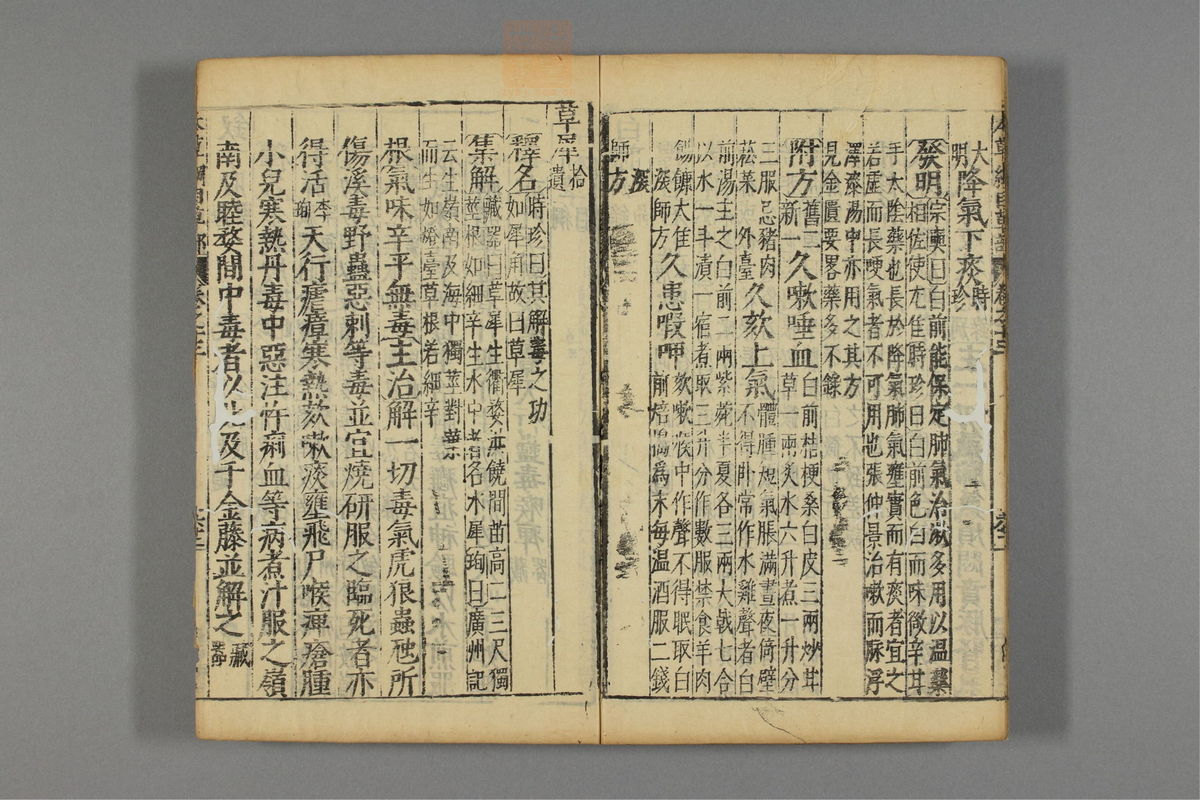 大明降氣下痰時珍
發明宗奭曰白前能保定肺氣治嗽多用以溫藥
相佐使尤佳時珍曰白前色白而味微辛甘
手太陰藥也長於降氣肺氣壅實而有痰者宜之
若虛而長哽氣者不可用也張仲景治嗽而脉浮
澤漆湯中亦用之其方
見金匱要畧藥多不錄
附方舊二新一久嗽唾血白前桔梗桑白皮三兩炒甘草一兩炙水六升煮一升分
三服忌豬肉菘菜外臺久欬上氣體腫短氣脹滿晝夜倚壁不得卧常作水雞聲者白
前湯主之白前二兩紫菀半夏各三兩大戟七合
以水一斗漬一宿煮取三升分作數服禁食羊肉
餳餹大佳深師方久患暇呷欬嗽喉中作聲不得眠取白前焙擣爲末每溫酒服二錢
深師方
草犀拾遺
釋名時珍曰其解毒之功如犀角故曰草犀
集解藏器曰草犀生衢婺洪饒間苗高二三尺獨莖根如細辛生水中者名水犀珣曰廣州記
云生嶺南及海中獨莖對葉而生如燈臺草根若細辛
根氣味辛平無毒主治解一切毒氣虎狼蟲虺所
傷溪毒野蠱惡刺等毒並宜燒研服之臨死者亦
得活李珣天行瘧瘴寒熱欬嗽痰壅飛尸喉痺瘡腫
小兒寒熱丹毒中惡注忤痢血等病煮汁服之嶺
南及睦婺間中毒者以此及千金藤並解之藏器